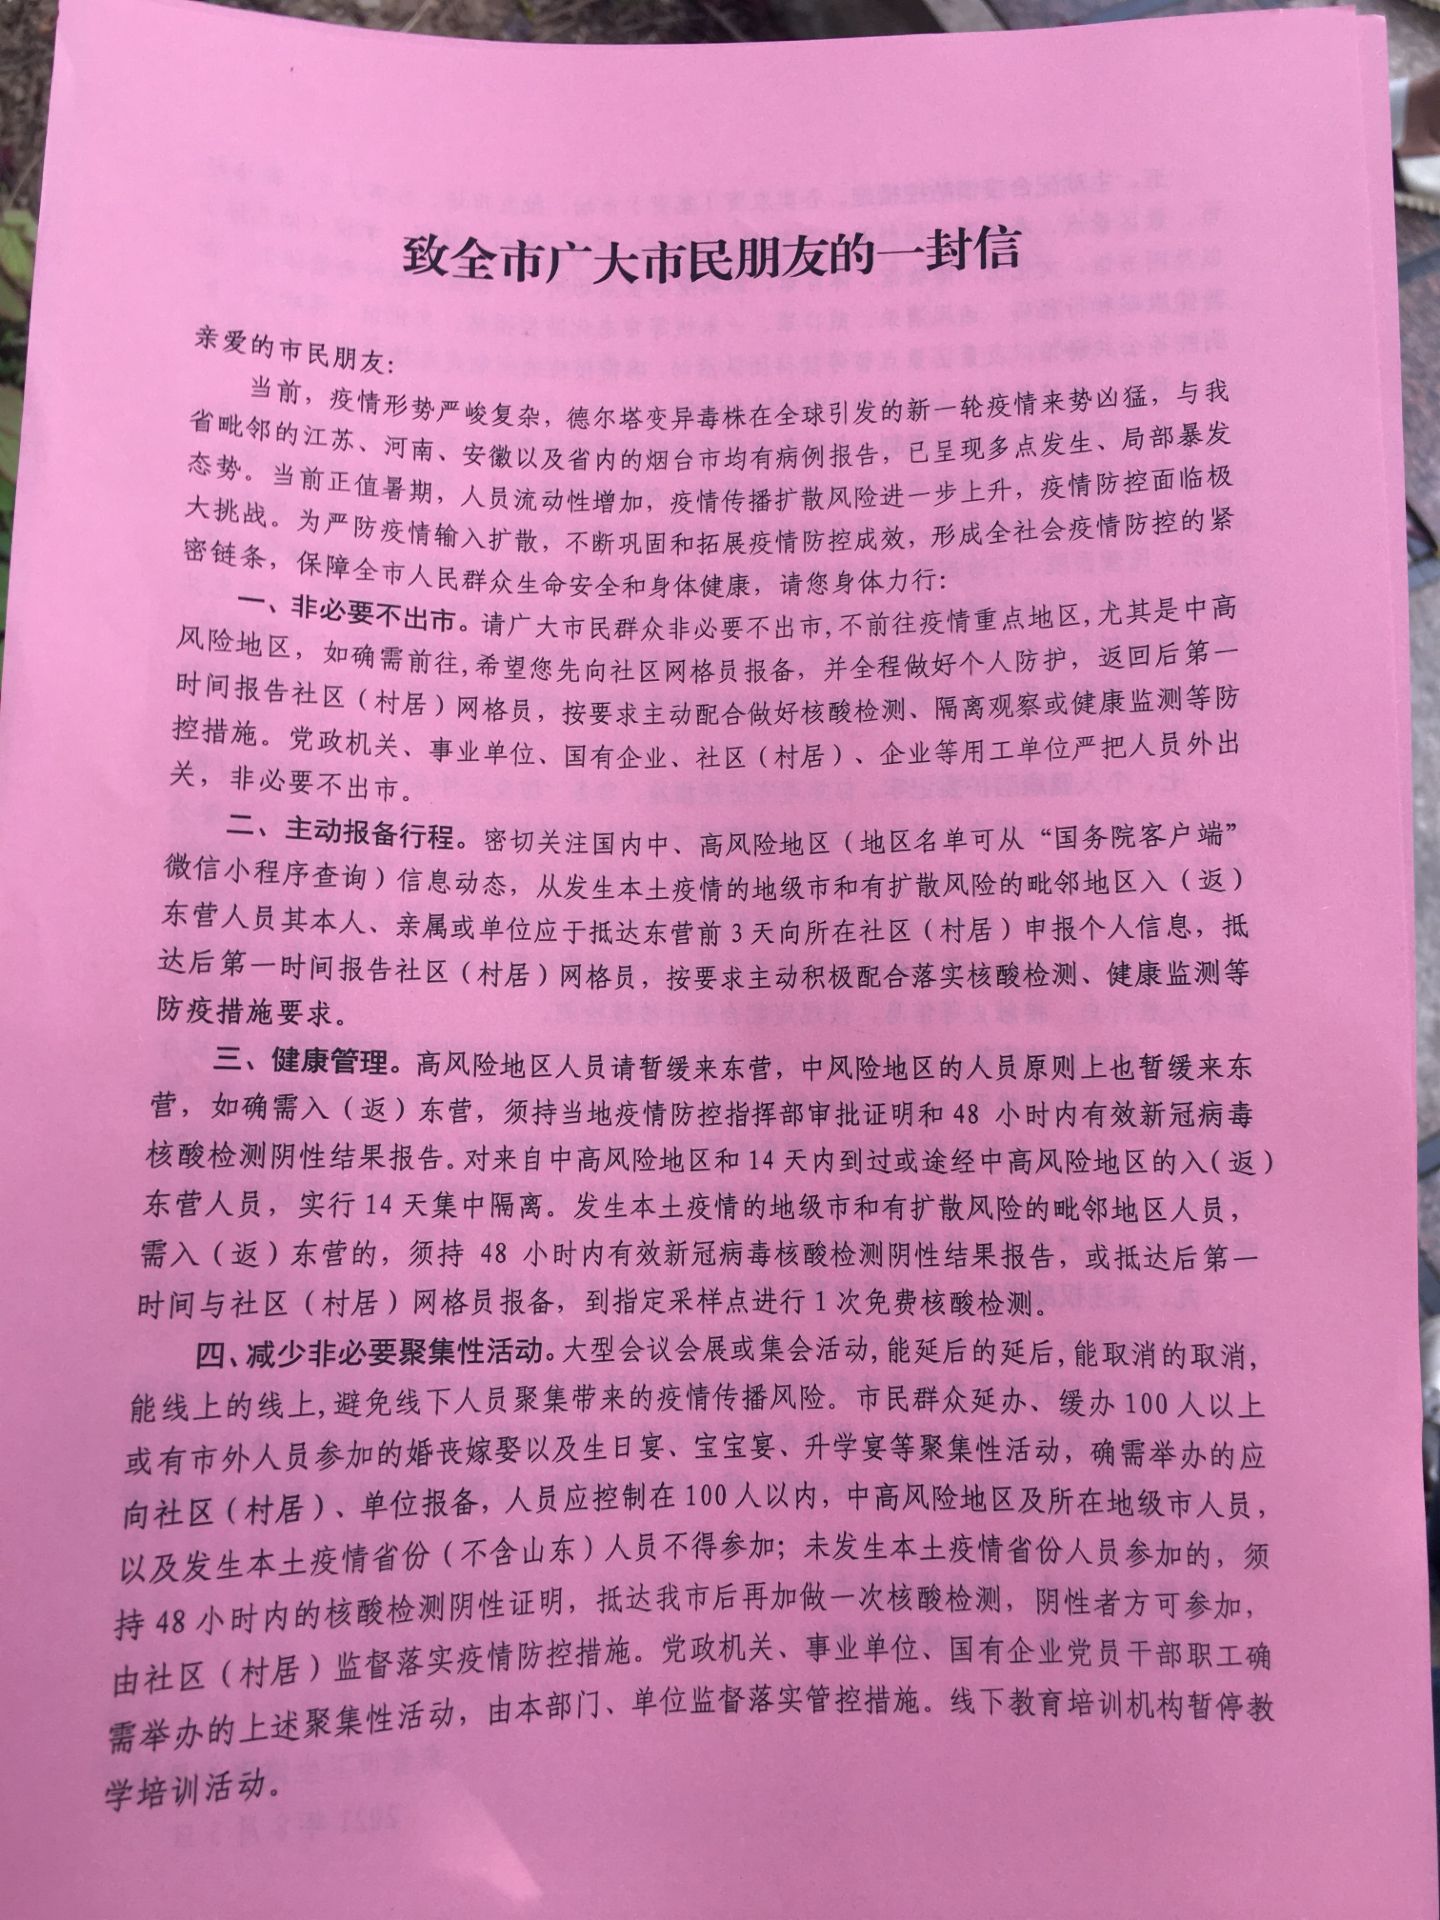 致全市广大市民朋友的一封信
亲爱的市民朋友：
当前，疫情形势严峻复杂，德尔塔变异毒株在全球引发的新一轮疫情来势凶猛，与我
省毗邻的江苏、河南、安徽以及省内的烟台市均有病例报告，已呈现多点发生、局部暴发
态势。当前正值暑期，人员流动性增加，疫情传播扩散风险进一步上升，疫情防控面临极
大挑战。为严防疫情输入扩散，不断巩固和拓展疫情防控成效，形成全社会疫情防控的紧
密链条，保障全市人民群众生命安全和身体健康，请您身体力行：
一、非必要不出市。请广大市民群众非必要不出市,不前往疫情重点地区,尤其是中高
风险地区，如确需前往,希望您先向社区网格员报备，并全程做好个人防护，返回后第一
时间报告社区（村居）网格员，按要求主动配合做好核酸检测、隔离观察或健康监测等防
控措施。党政机关、事业单位、国有企业、社区（村居）、企业等用工单位严把人员外出
关，非必要不出市。
二、主动报备行程。密切关注国内中、高风险地区（地区名单可从“国务院客户端”
微信小程序查询）信息动态，从发生本土疫情的地级市和有扩散风险的毗邻地区入（返）
东营人员其本人、亲属或单位应于抵达东营前3天向所在社区（村居）申报个人信息，抵
达后第一时间报告社区（村居）网格员，按要求主动积极配合落实核酸检测、健康监测等
防疫措施要求。
三、健康管理。高风险地区人员请暂缓来东营，中风险地区的人员原则上也暂缓来东
营，如确需入（返）东营，须持当地疫情防控指挥部审批证明和48小时内有效新冠病毒
核酸检测阴性结果报告。对来自中高风险地区和14天内到过或途经中高风险地区的入（返）
东营人员，实行14天集中隔离。发生本土疫情的地级市和有扩散风险的毗邻地区人员，
需入（返）东营的，须持 48 小时内有效新冠病毒核酸检测阴性结果报告，或抵达后第一
时间与社区（村居）网格员报备，到指定采样点进行1次免费核酸检测。
四、减少非必要聚集性活动。大型会议会展或集会活动,能延后的延后,能取消的取消,
能线上的线上,避免线下人员聚集带来的疫情传播风险。市民群众延办、缓办100人以上
或有市外人员参加的婚丧嫁娶以及生日宴、宝宝宴、升学宴等聚集性活动，确需举办的应
向社区（村居）、单位报备，人员应控制在100人以内，中高风险地区及所在地级市人员，
以及发生本土疫情省份（不含山东）人员不得参加；未发生本土疫情省份人员参加的，须
持48小时内的核酸检测阴性证明，抵达我市后再加做一次核酸检测，阴性者方可参加，
由社区（村居）监督落实疫情防控措施。党政机关、事业单位、国有企业党员干部职工确
需举办的上述聚集性活动，由本部门、单位监督落实管控措施。线下教育培训机构暂停教
学培训活动。